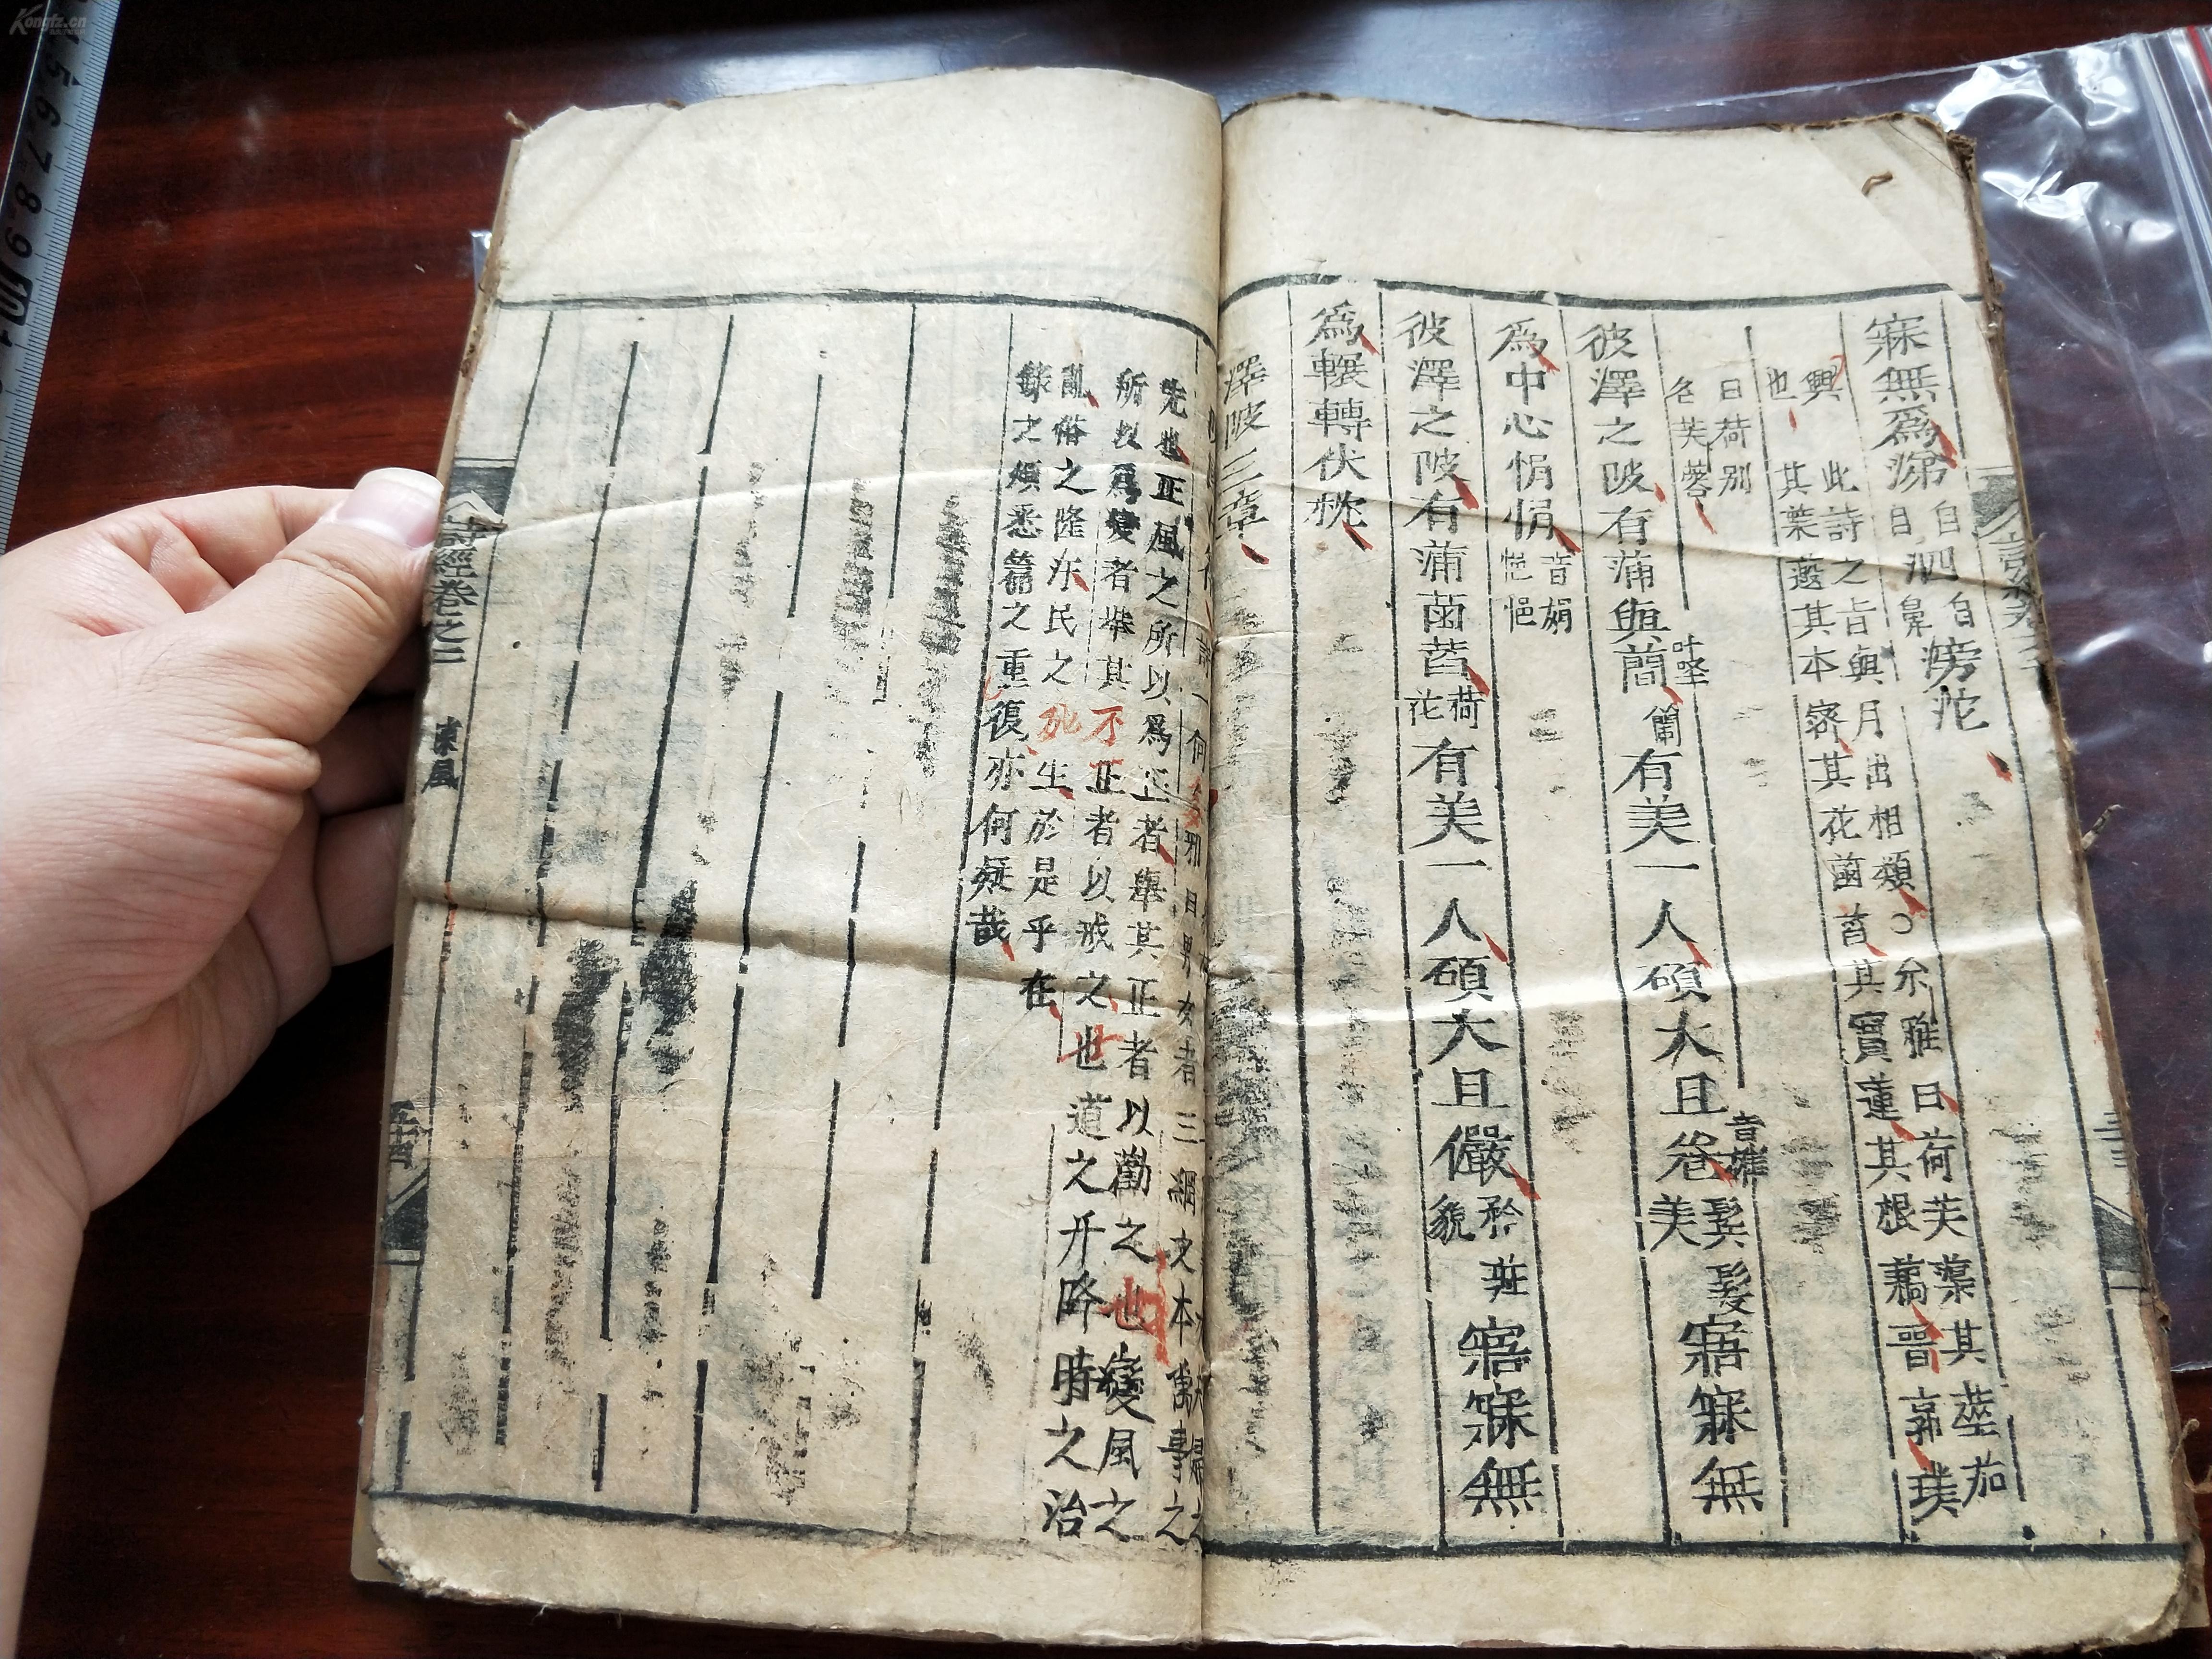 寐無爲涕自目泗自鼻滂沱
興也 此詩之旨與月出相類○尒雅曰荷芙蕖其莖茄
其葉蕸其本蔤其花菡萏其實蓮其根藕晋郭璞
曰荷別名芙蓉
彼澤之陂有蒲與蕳叶堅蘭有美一人碩大且卷音權鬓髮美寤寐無
爲中心悁悁音娟悒悒
彼澤之陂有蒲菡萏荷花有美一人碩大且儼矜莊貌寤寐無
爲輾轉伏枕
澤陂三章
先也正風之所以爲正者舉其正者以勸之也變風之
所以爲變者舉其不正者以戒之也道之升降時之治
亂俗之隆汚民之死生於是乎在
錄之煩悉篇之重復亦何疑哉
詩經卷之二 陳風
Kongfz.cn
5 6 7 8 9